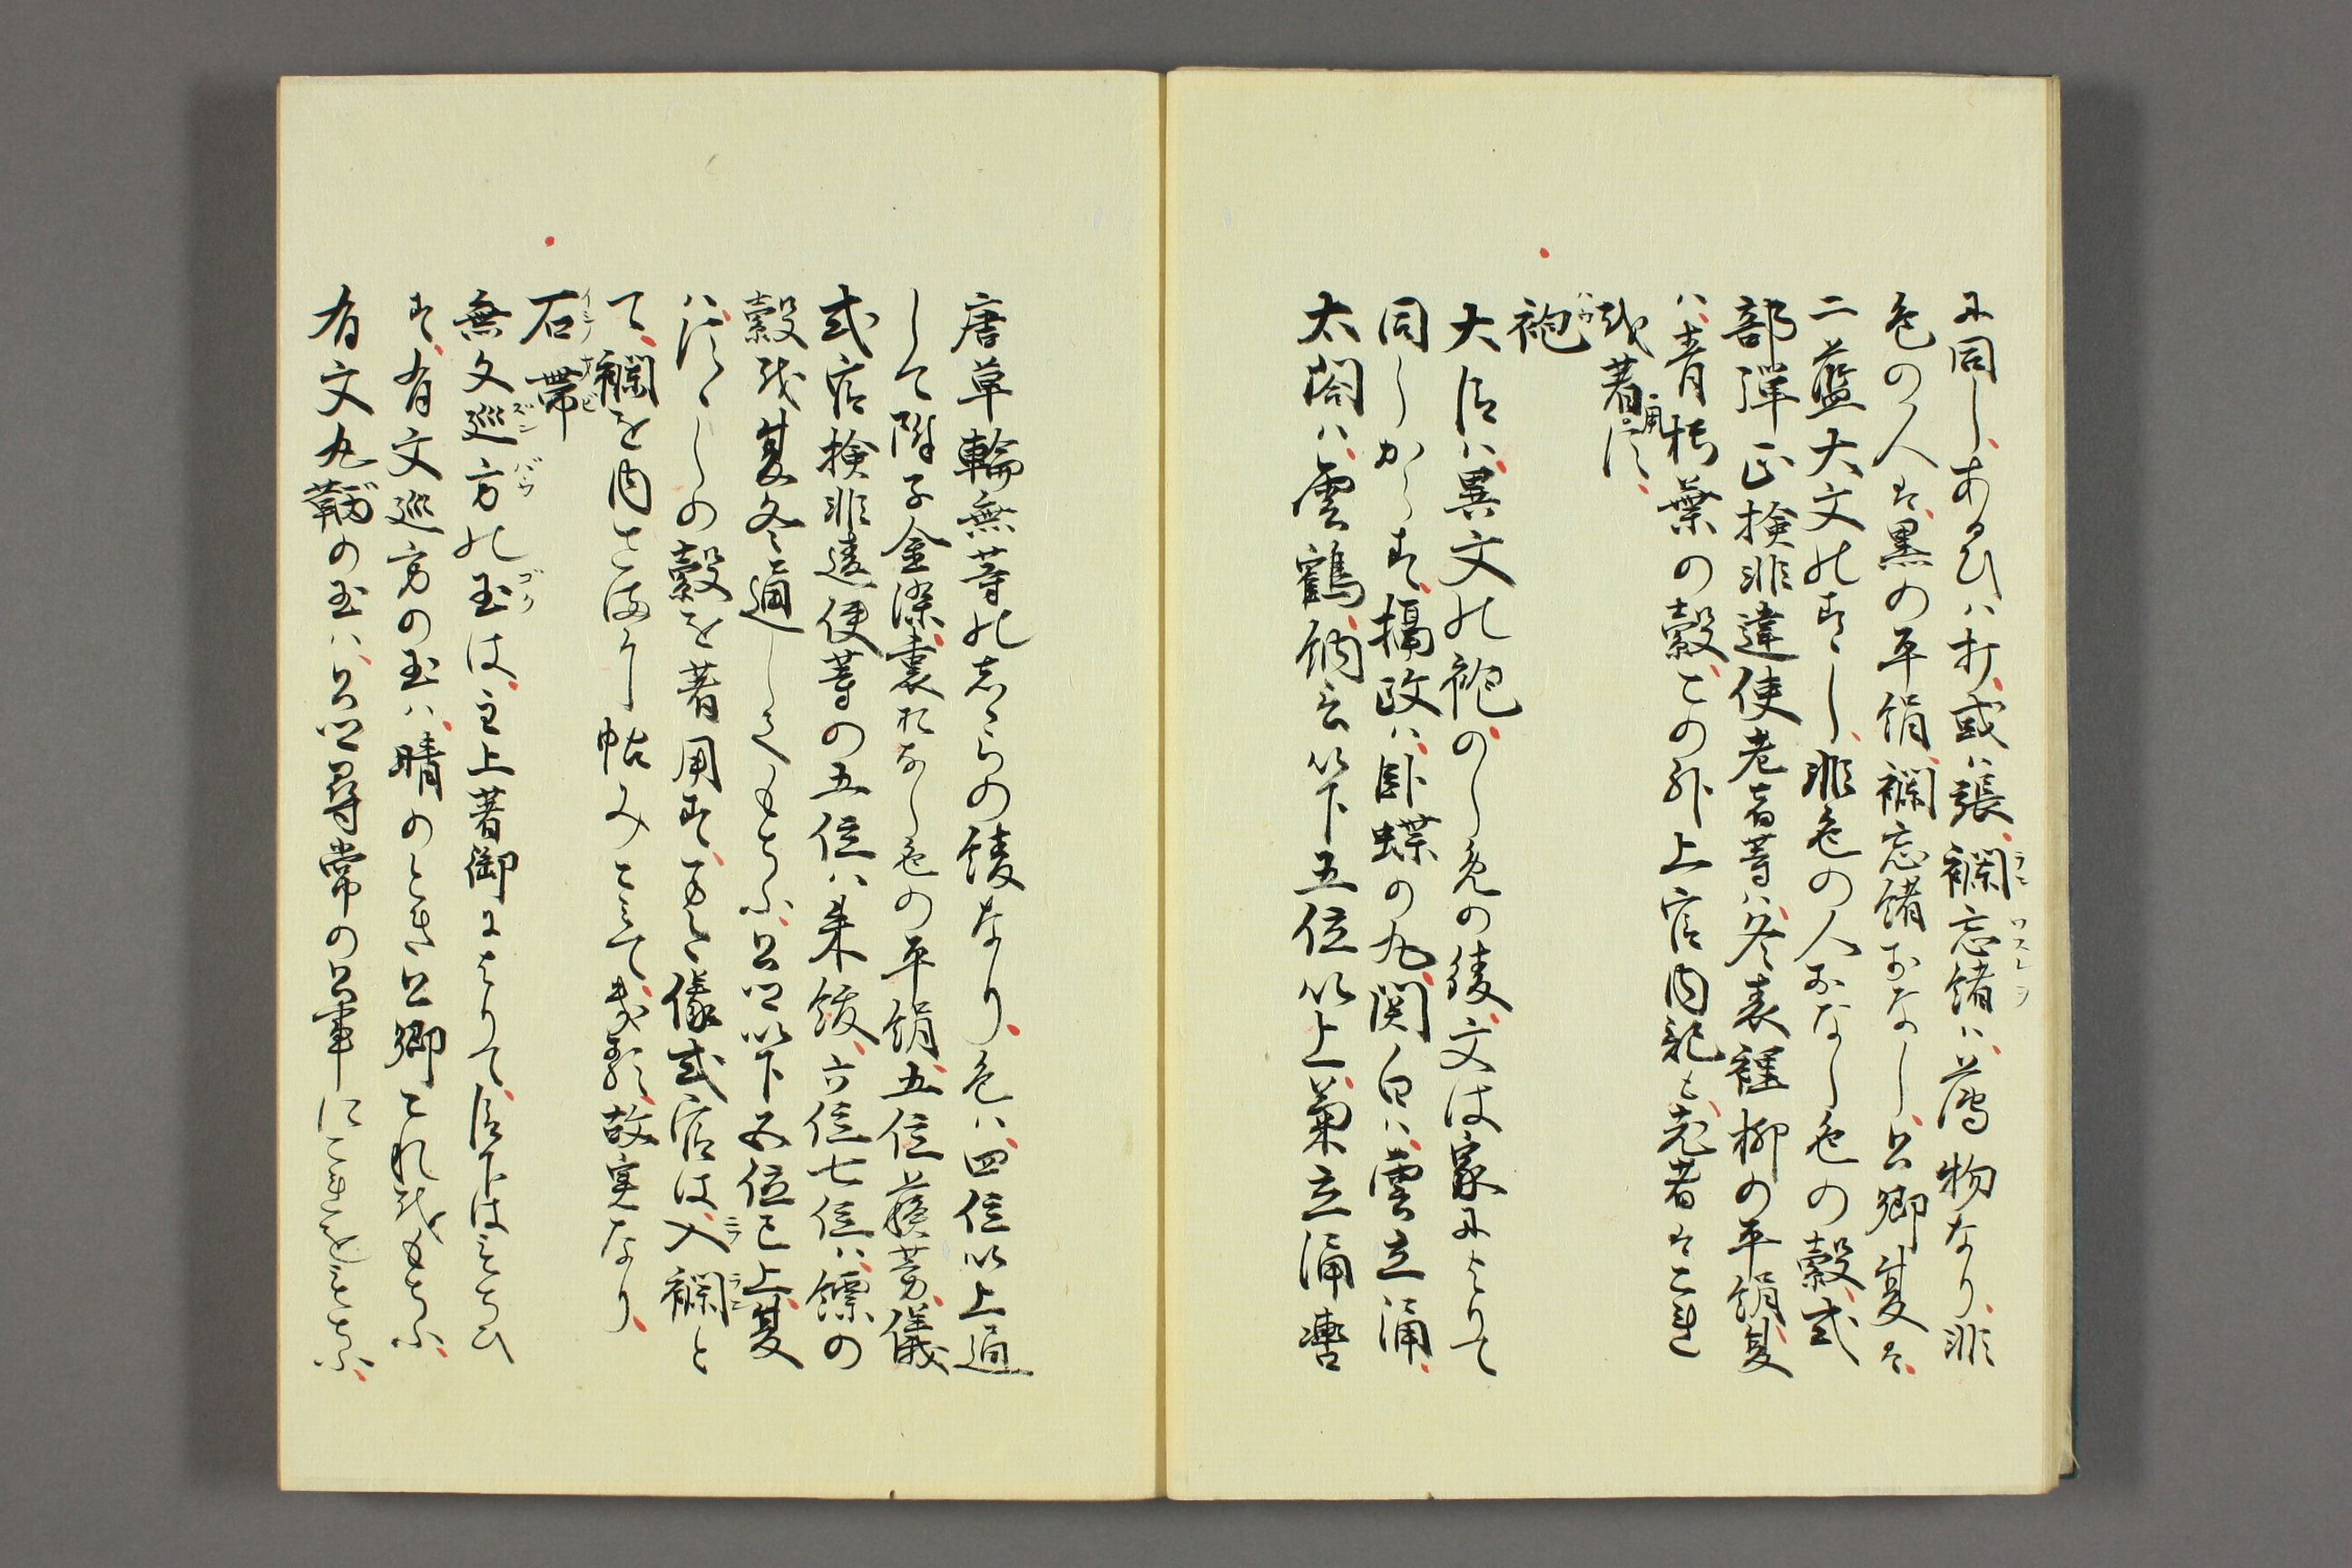 に同し、あるひハ打、或ハ張、襴忘緒ハ、薄物なり、非
色の人は、黒の平絹、襴忘緒おなし、公卿夏は、
二藍大文のすゝし、非色の人おなし色の縠、式
部弾正検非違使老者等ハ、冬表裡柳の平絹、夏
ハ、青朽葉の縠、この外上官内記も、老者はこれ
を著用す、
袍
大臣ハ、異文の袍のしめの綾、文は家によりて
同しからす、摂政ハ、臥蝶の丸、関白ハ、雲立涌、
太閤ハ、雲鶴、納言以下五位以上、菊立涌轡
唐草輪無等のしゝらの綾なり、色ハ、四位以上通
して階子金漆、裏おなし色の平絹、五位蘇芳、儀
式官検非違使等の五位ハ朱紱、六位七位ハ、縹の
縠を夏冬通してもちふ、公卿以下五位已上、夏
ハすゝしの縠を著用す、一切之儀式官は、入襴と
て、襴を内さまに帖みこみて、裁縫、故実なり、
石帯
無文巡方の玉は、主上著御によりて、臣下はもちひ
す、有文巡方の玉ハ、晴のとき公卿これをもちふ、
有文丸鞆の玉ハ、公卿尋常の公事にこれをもちふ、